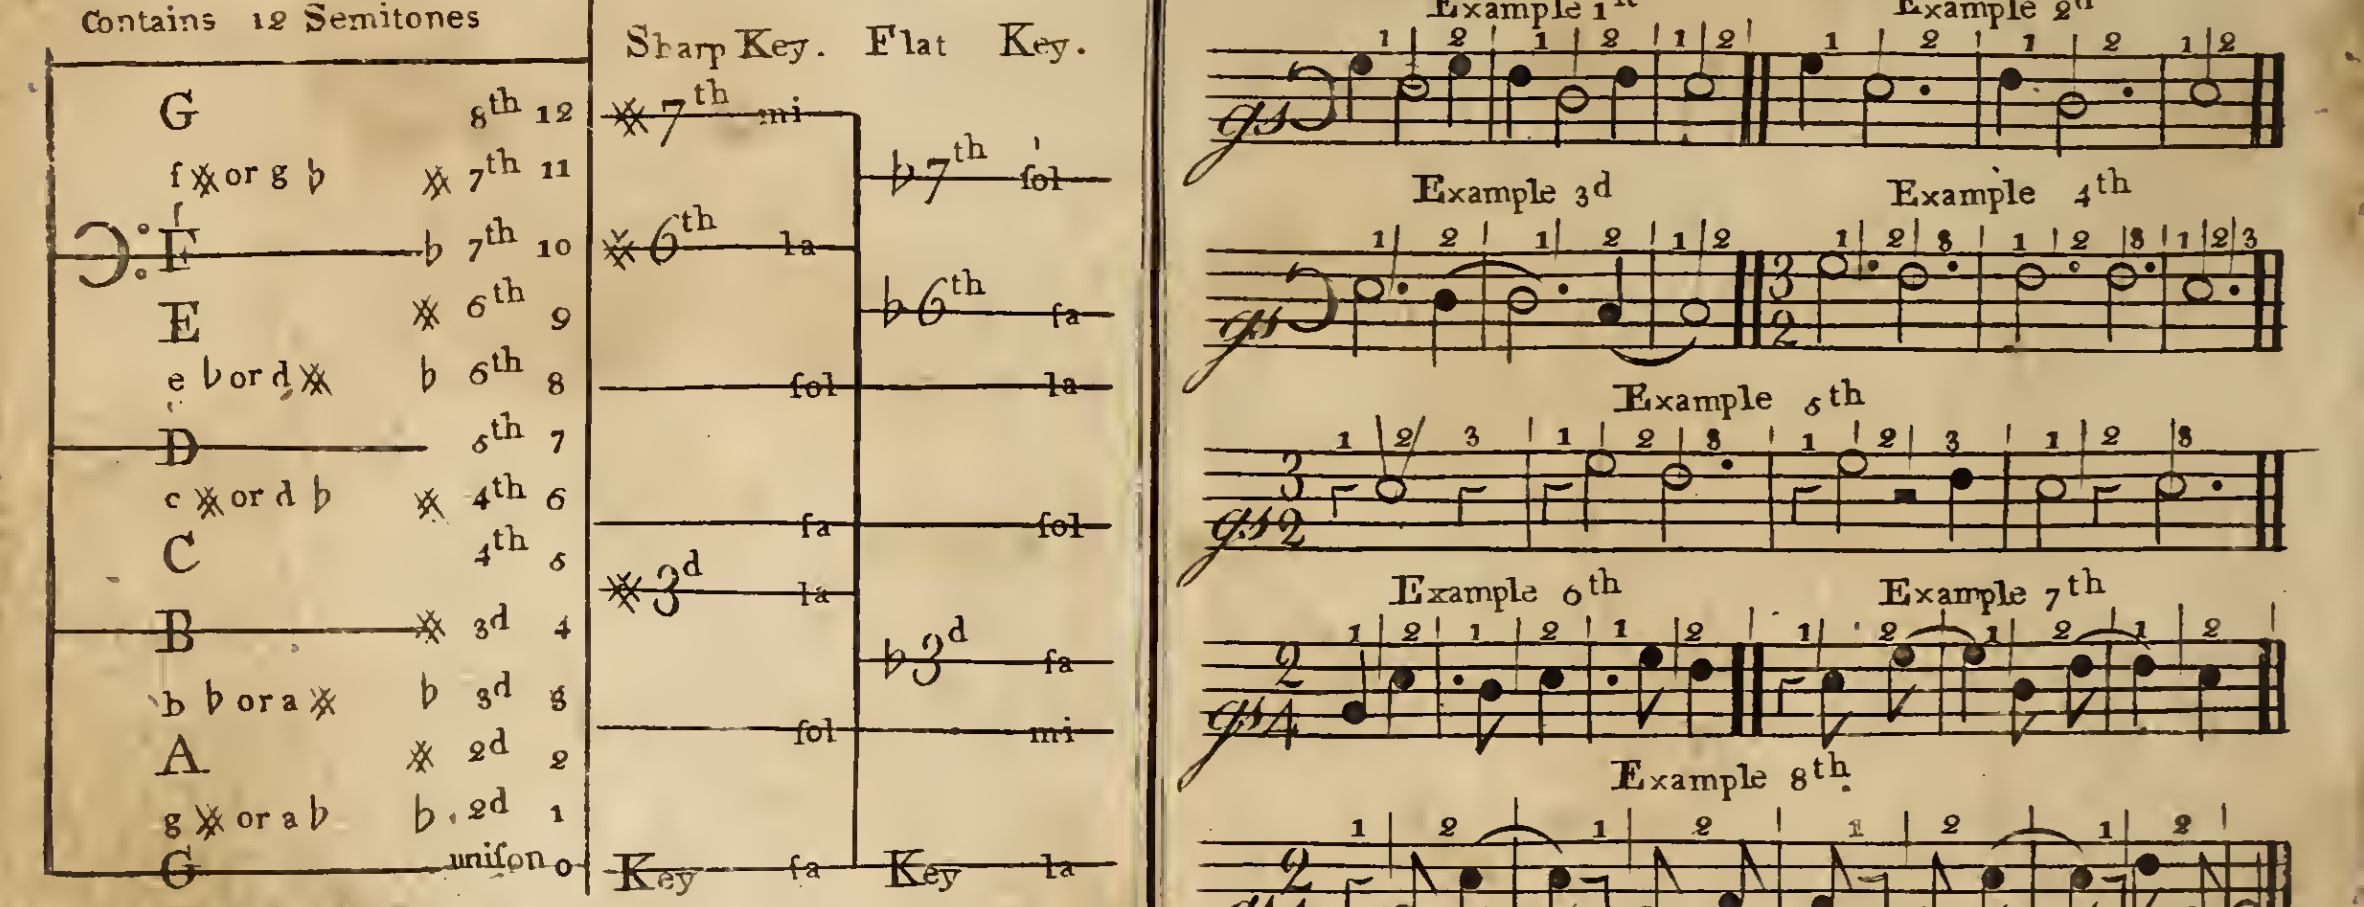 Contains 12 Semitones
G 8th 12
f𝄪 or g ♭ 𝄪 7th 11
F ♭ 7th 10
E 𝄪 6th 9
e ♭ or d 𝄪 ♭ 6th 8
D 5th 7
c 𝄪 or d ♭ 𝄪 4th 6
C 4th 5
B 𝄪 3d 4
b ♭ or a 𝄪 ♭ 3d 3
A 𝄪 2d 2
g 𝄪 or a ♭ ♭ 2d 1
G uniſon 0
Sharp Key. Flat Key.
𝄪 7th mi
♭ 7th ſol
𝄪 6th la
♭ 6th fa
ſol la
fa ſol
𝄪 3d la
♭ 3d fa
ſol mi
Key fa Key la
Example 1st Example 2d
1 2 1 2 1 2 1 2 1 2 1 2
gs
Example 3d Example 4th
1 2 1 2 1 2 1 2 3 1 2 3 1 2 3
gs 3 2
Example 5th
1 2 3 1 2 3 1 2 3 1 2 3
gs 3 2
Example 6th Example 7th
1 2 1 2 1 2 1 2 1 2 1 2
gs 2 4
Example 8th.
1 2 1 2 1 2 1 2
2